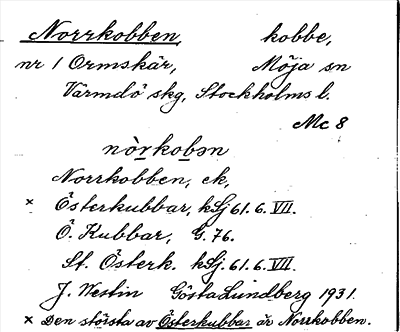 Norrkobben, kobbe,
nr 1 Ormskär, Möja sn
Värmdö skg, Stockholms l.
Mc 8
nò̱rko̱bən
Norrkobben, ek,
× Österkubbar, kSj 61.6.VII.
Ö. Kubbar, G. 76.
St. Österk. kSj. 61.6.VII.
J. Westin Gösta Lundberg 1931.
× Den största av Österkubbar är Norrkobben.